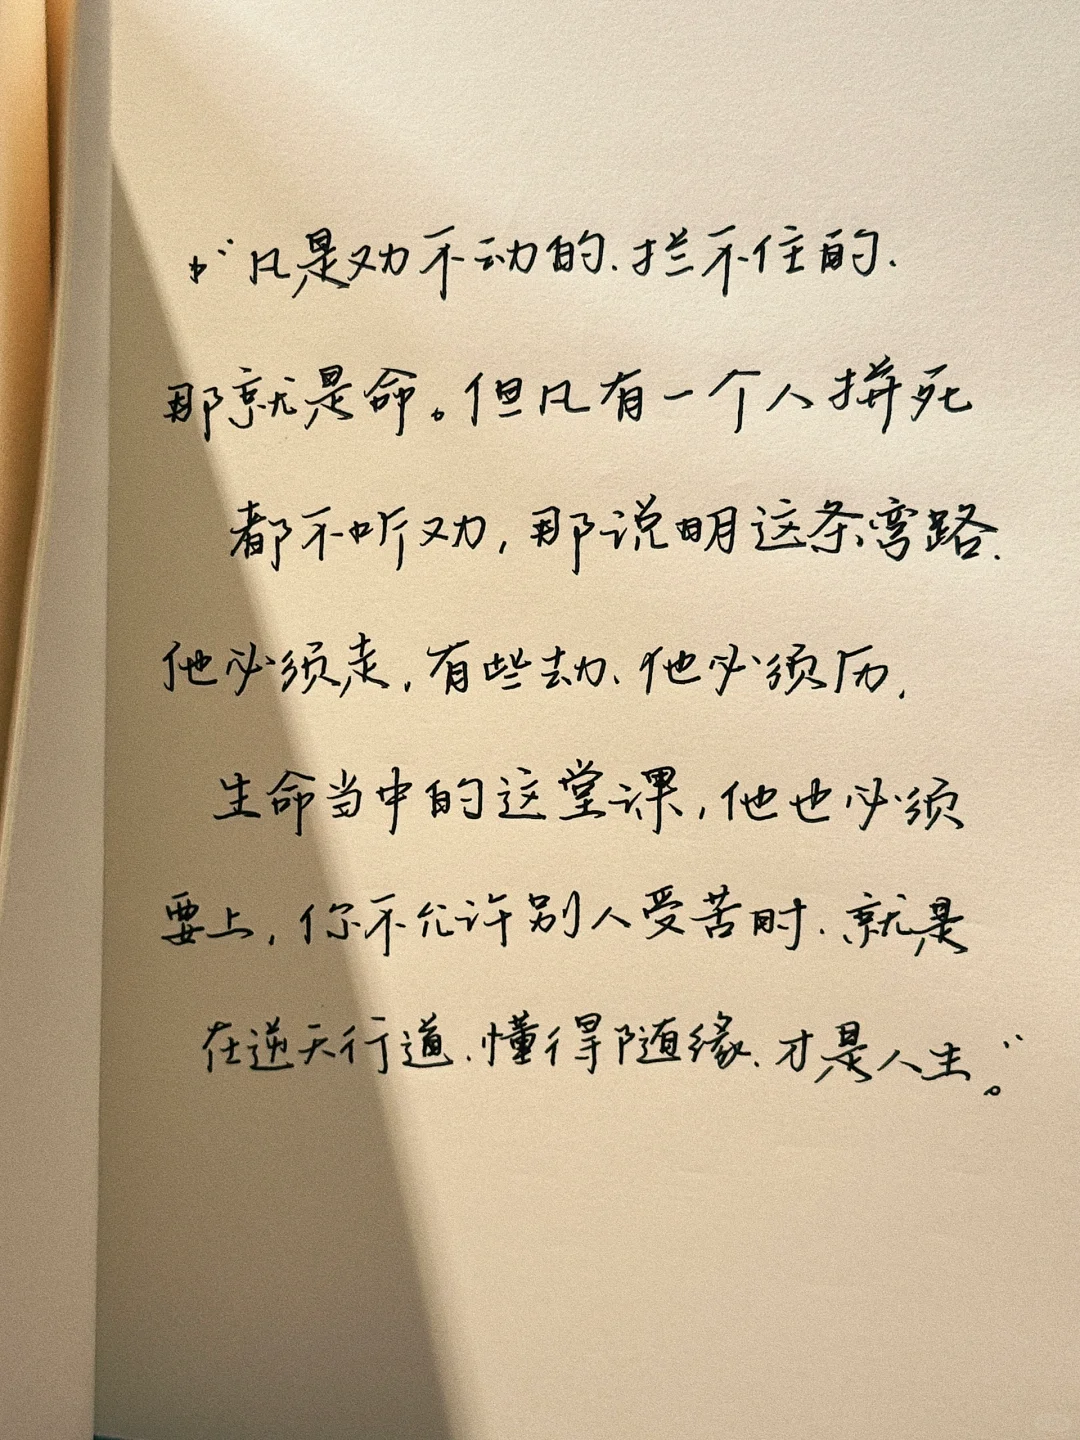 “凡是劝不动的、拦不住的、
那就是命。但凡有一个人拼死
都不听劝，那说明这条弯路、
他必须走，有些劫、他必须历，
生命当中的这堂课，他也必须
要上，你不允许别人受苦时、就是
在逆天行道、懂得随缘、才是人生。”